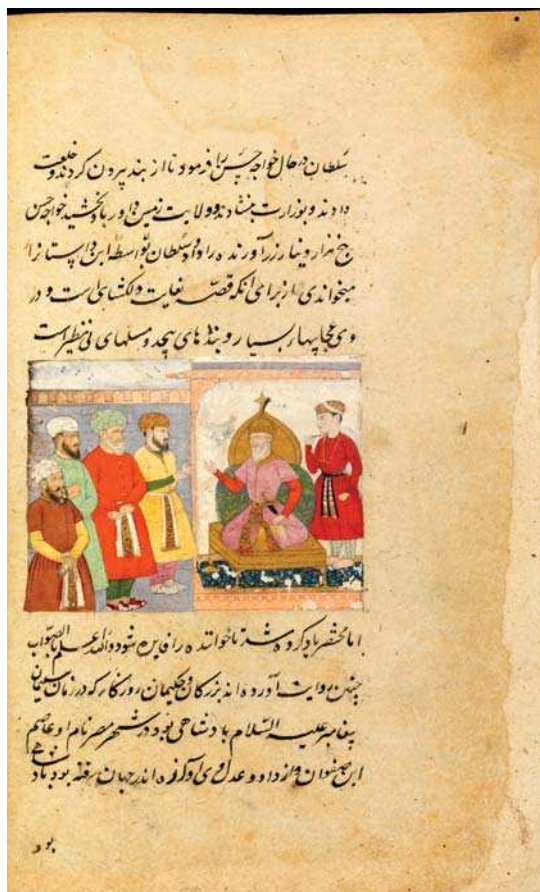 سلطان در حال خواجه حسن را فرمود تا از بند بیرون کردند و خلعت
دادند و بوزارت بنشاندند و ولایت زمین داور بدو بخشید خواجه حسن
پنج هزار دینار زر آورنده را داد و سلطان بواسطه این داستان را
میخواندی از برای آنکه قصه بغایت دلکشای است و در
وی عجایبهاء بسیار و پندهای بیحد و مثلهای بی نظیر است
اما مختصر یاد کرده شد تا خواننده را فایده شود والله اعلم بالصواب
چنین روایت آورده اند بزرگان و حکیمان روزگار که در زمان سلیمان
پیغامبر علیه السلام پادشاهی بود در شهر مصر نام او عاصم
ابن صفوان و از داد و عدل وی آوازه اندر جهان رفته بود
بود